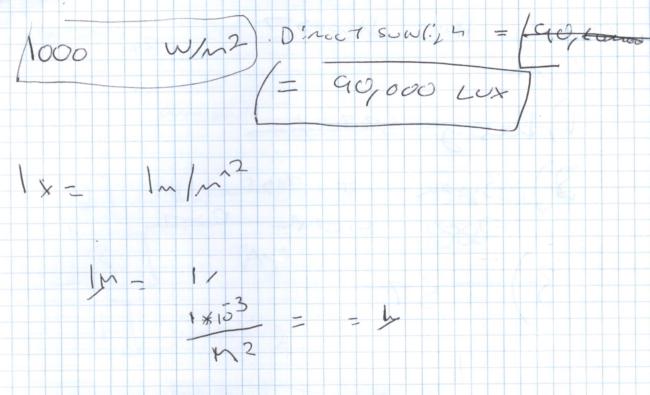 1000 W/m2 . Direct sunligh =
= 90,000 LUX
lx = lm/m2
lm = 1
1*10-3
m2 = =